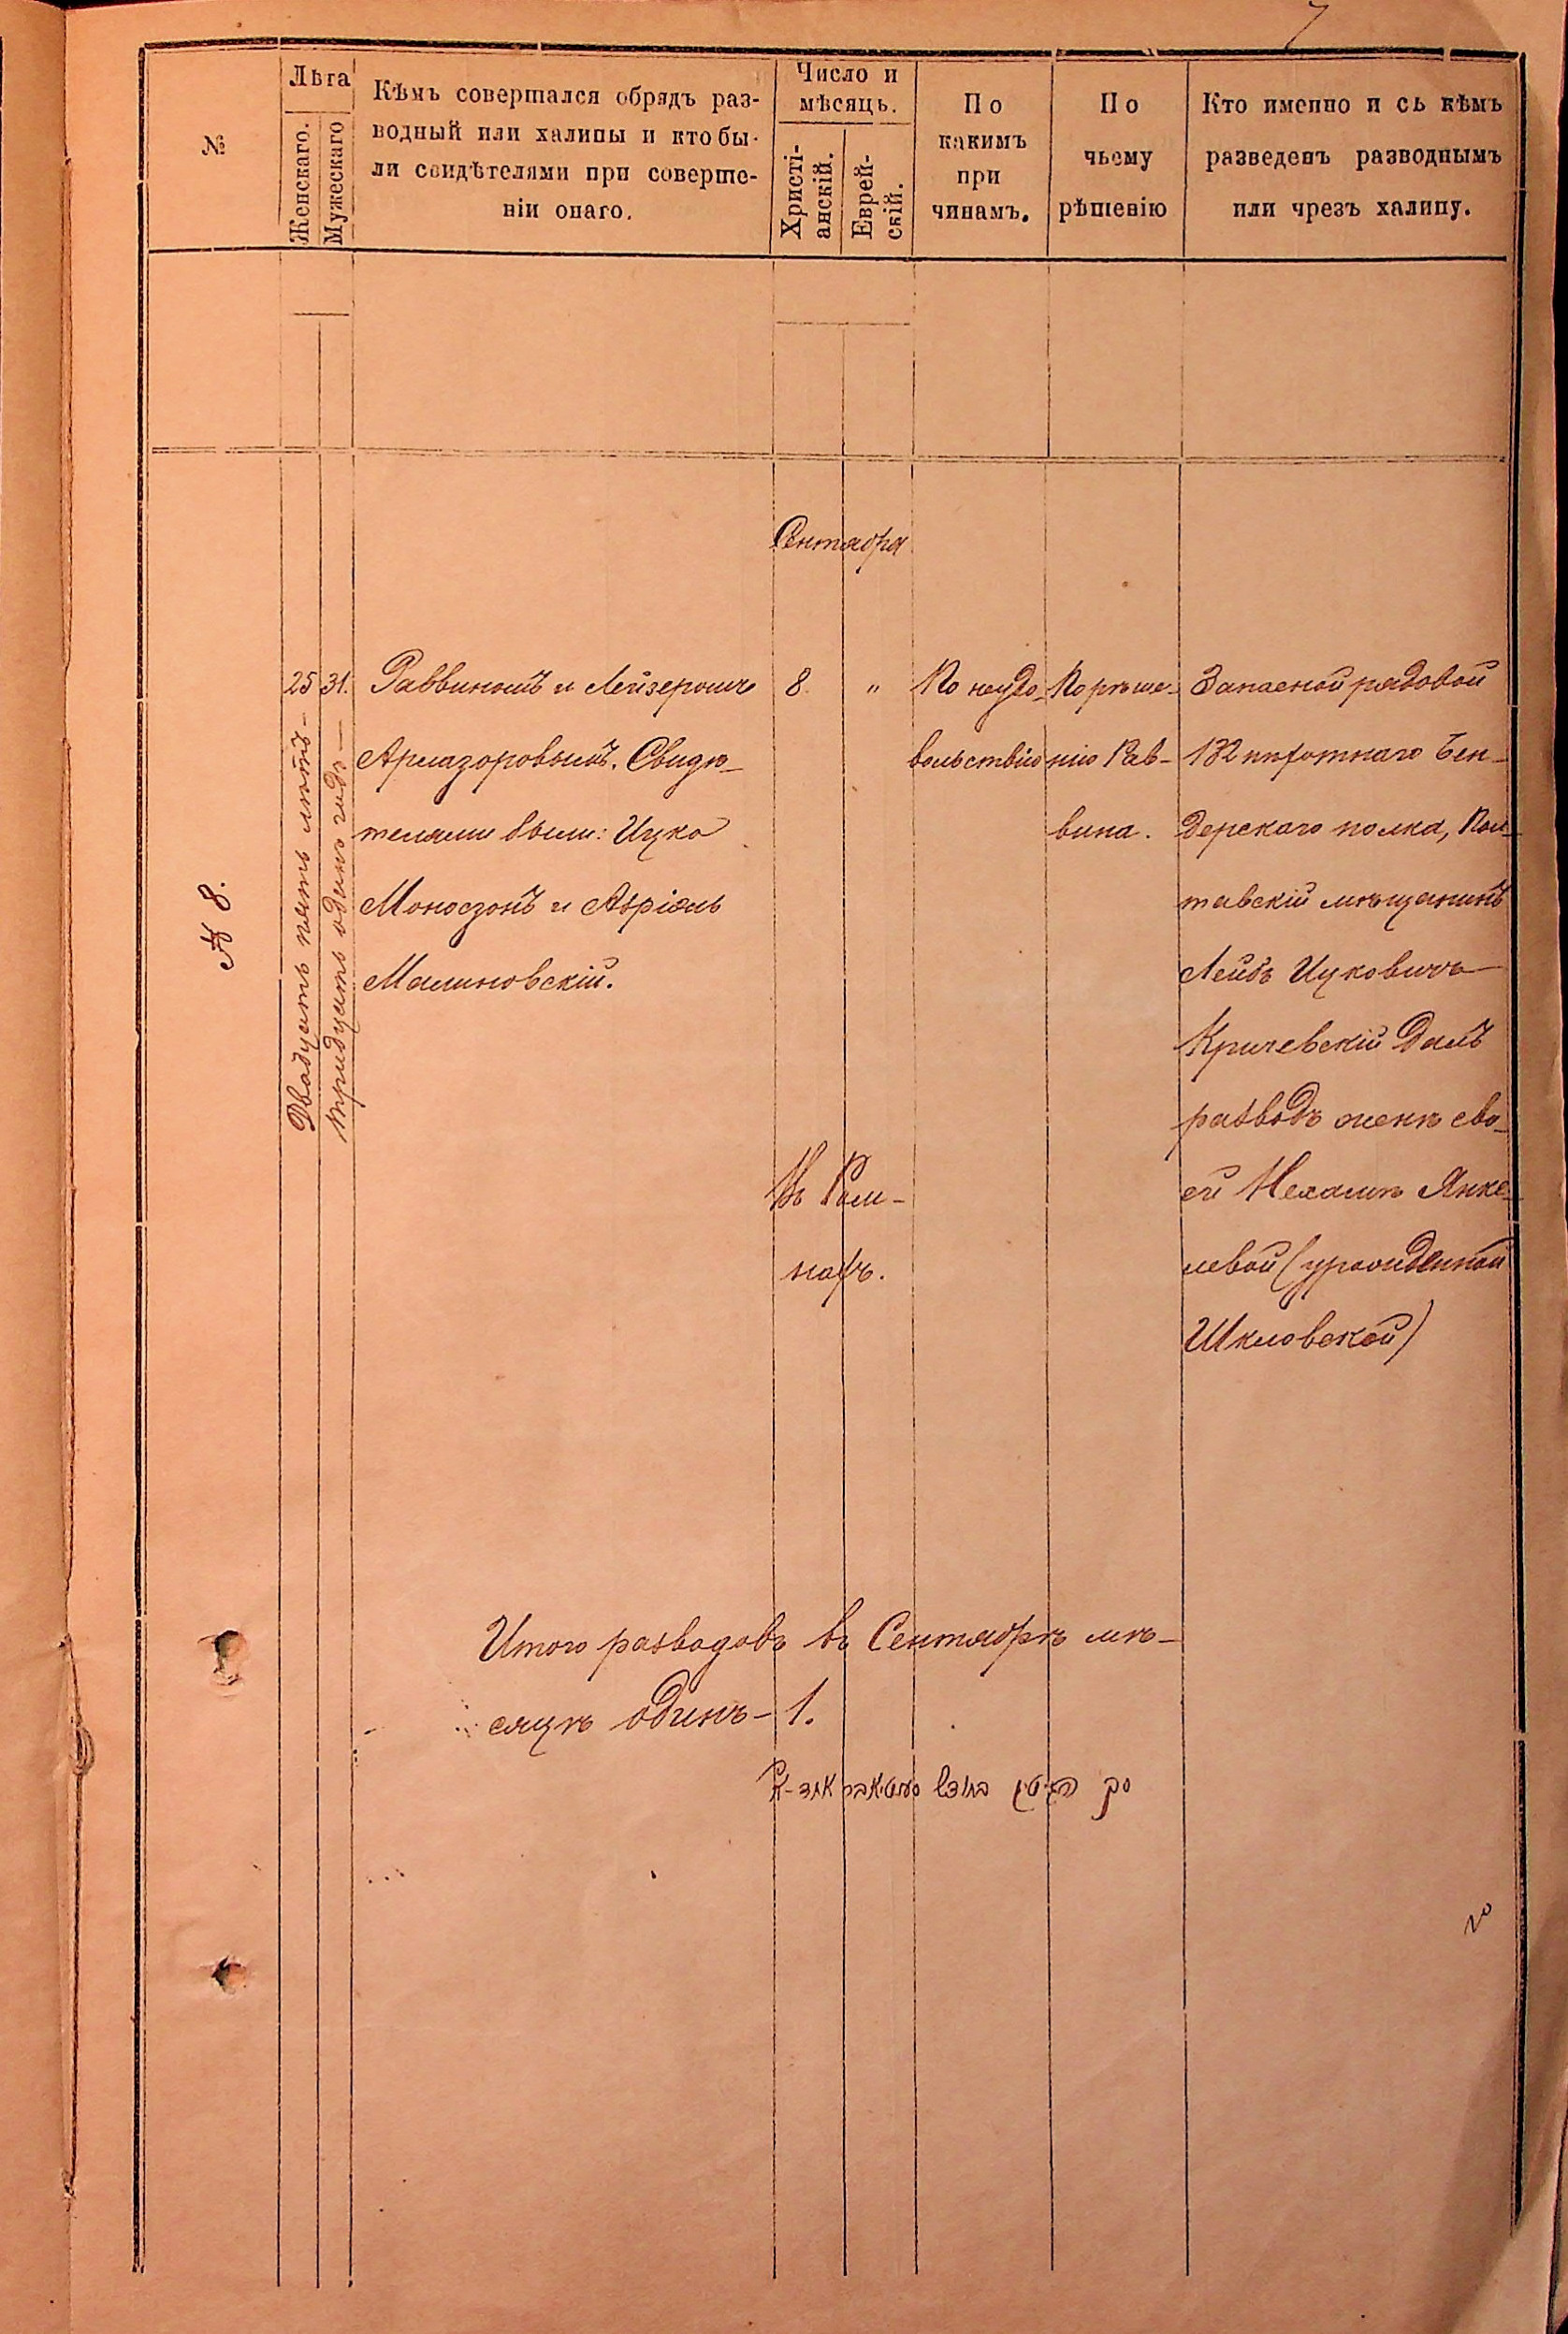 7
№
Лѣта
Женскаго.
Мужескаго
Кѣмъ совершался обрядъ раз-
водный или халицы и кто бы-
ли свидѣтелями при соверше-
ніи онаго.
Число и
мѣсяцъ.
Христі-
анскій.
Еврей-
скій.
По
какимъ
при
чинамъ.
По
чьему
рѣшенію
Кто именно и съ кѣмъ
разведенъ разводнымъ
или чрезъ халицу.
Сентября
№ 8.
25
Двадцать пять лѣтъ –
31.
тридцать одинъ годъ —
Раввиномъ и Лейзеромъ
Армазоровымъ. Свидѣ-
телями были: Ицко
Моносзонъ и Абріамъ
Малиновскій.
8.
"
Въ Ром-
нахъ.
По неудо-
вольствію
По рѣше-
нію Рав-
вина.
Запасной рядовой
132 пѣхотнаго Бен-
дерскаго полка, Пол-
тавскій мѣщанинъ
Лейбъ Ицковичъ
Кричевскій далъ
разводъ женѣ сво-
ей Нехамѣ Янке-
левой (урожденной
Шкловской)
Итого разводовъ въ Сентябрѣ мѣ-
сяцѣ одинъ – 1.
סך גיטין בחודש סעפטיאבר